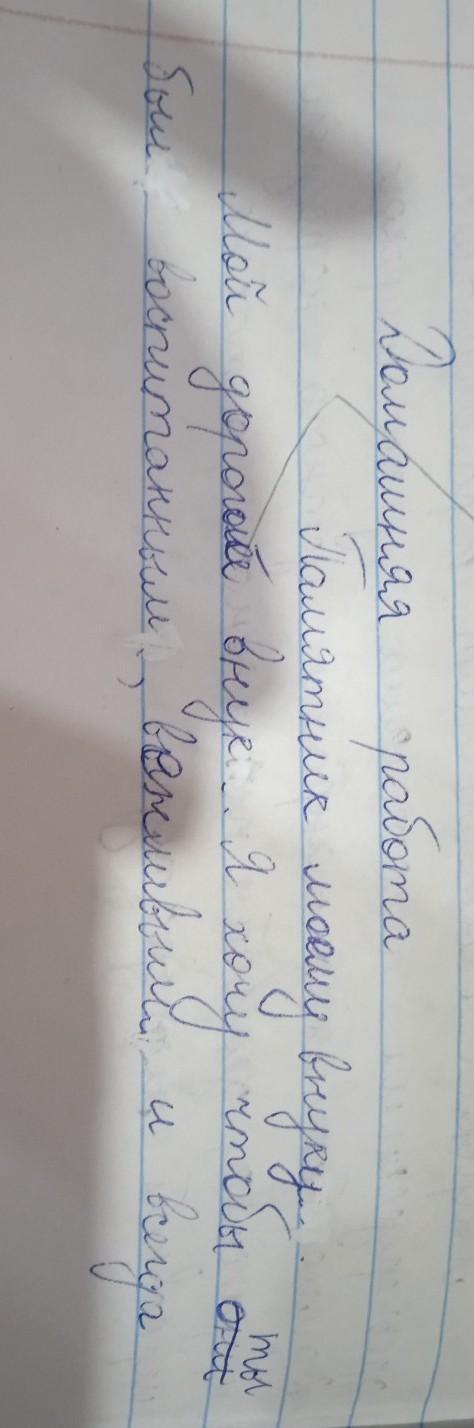 Домашняя работа
Памятник моему внуку.
Мой дорогой внук. Я хочу чтобы ты
был воспитанным, вяжливым и всегда